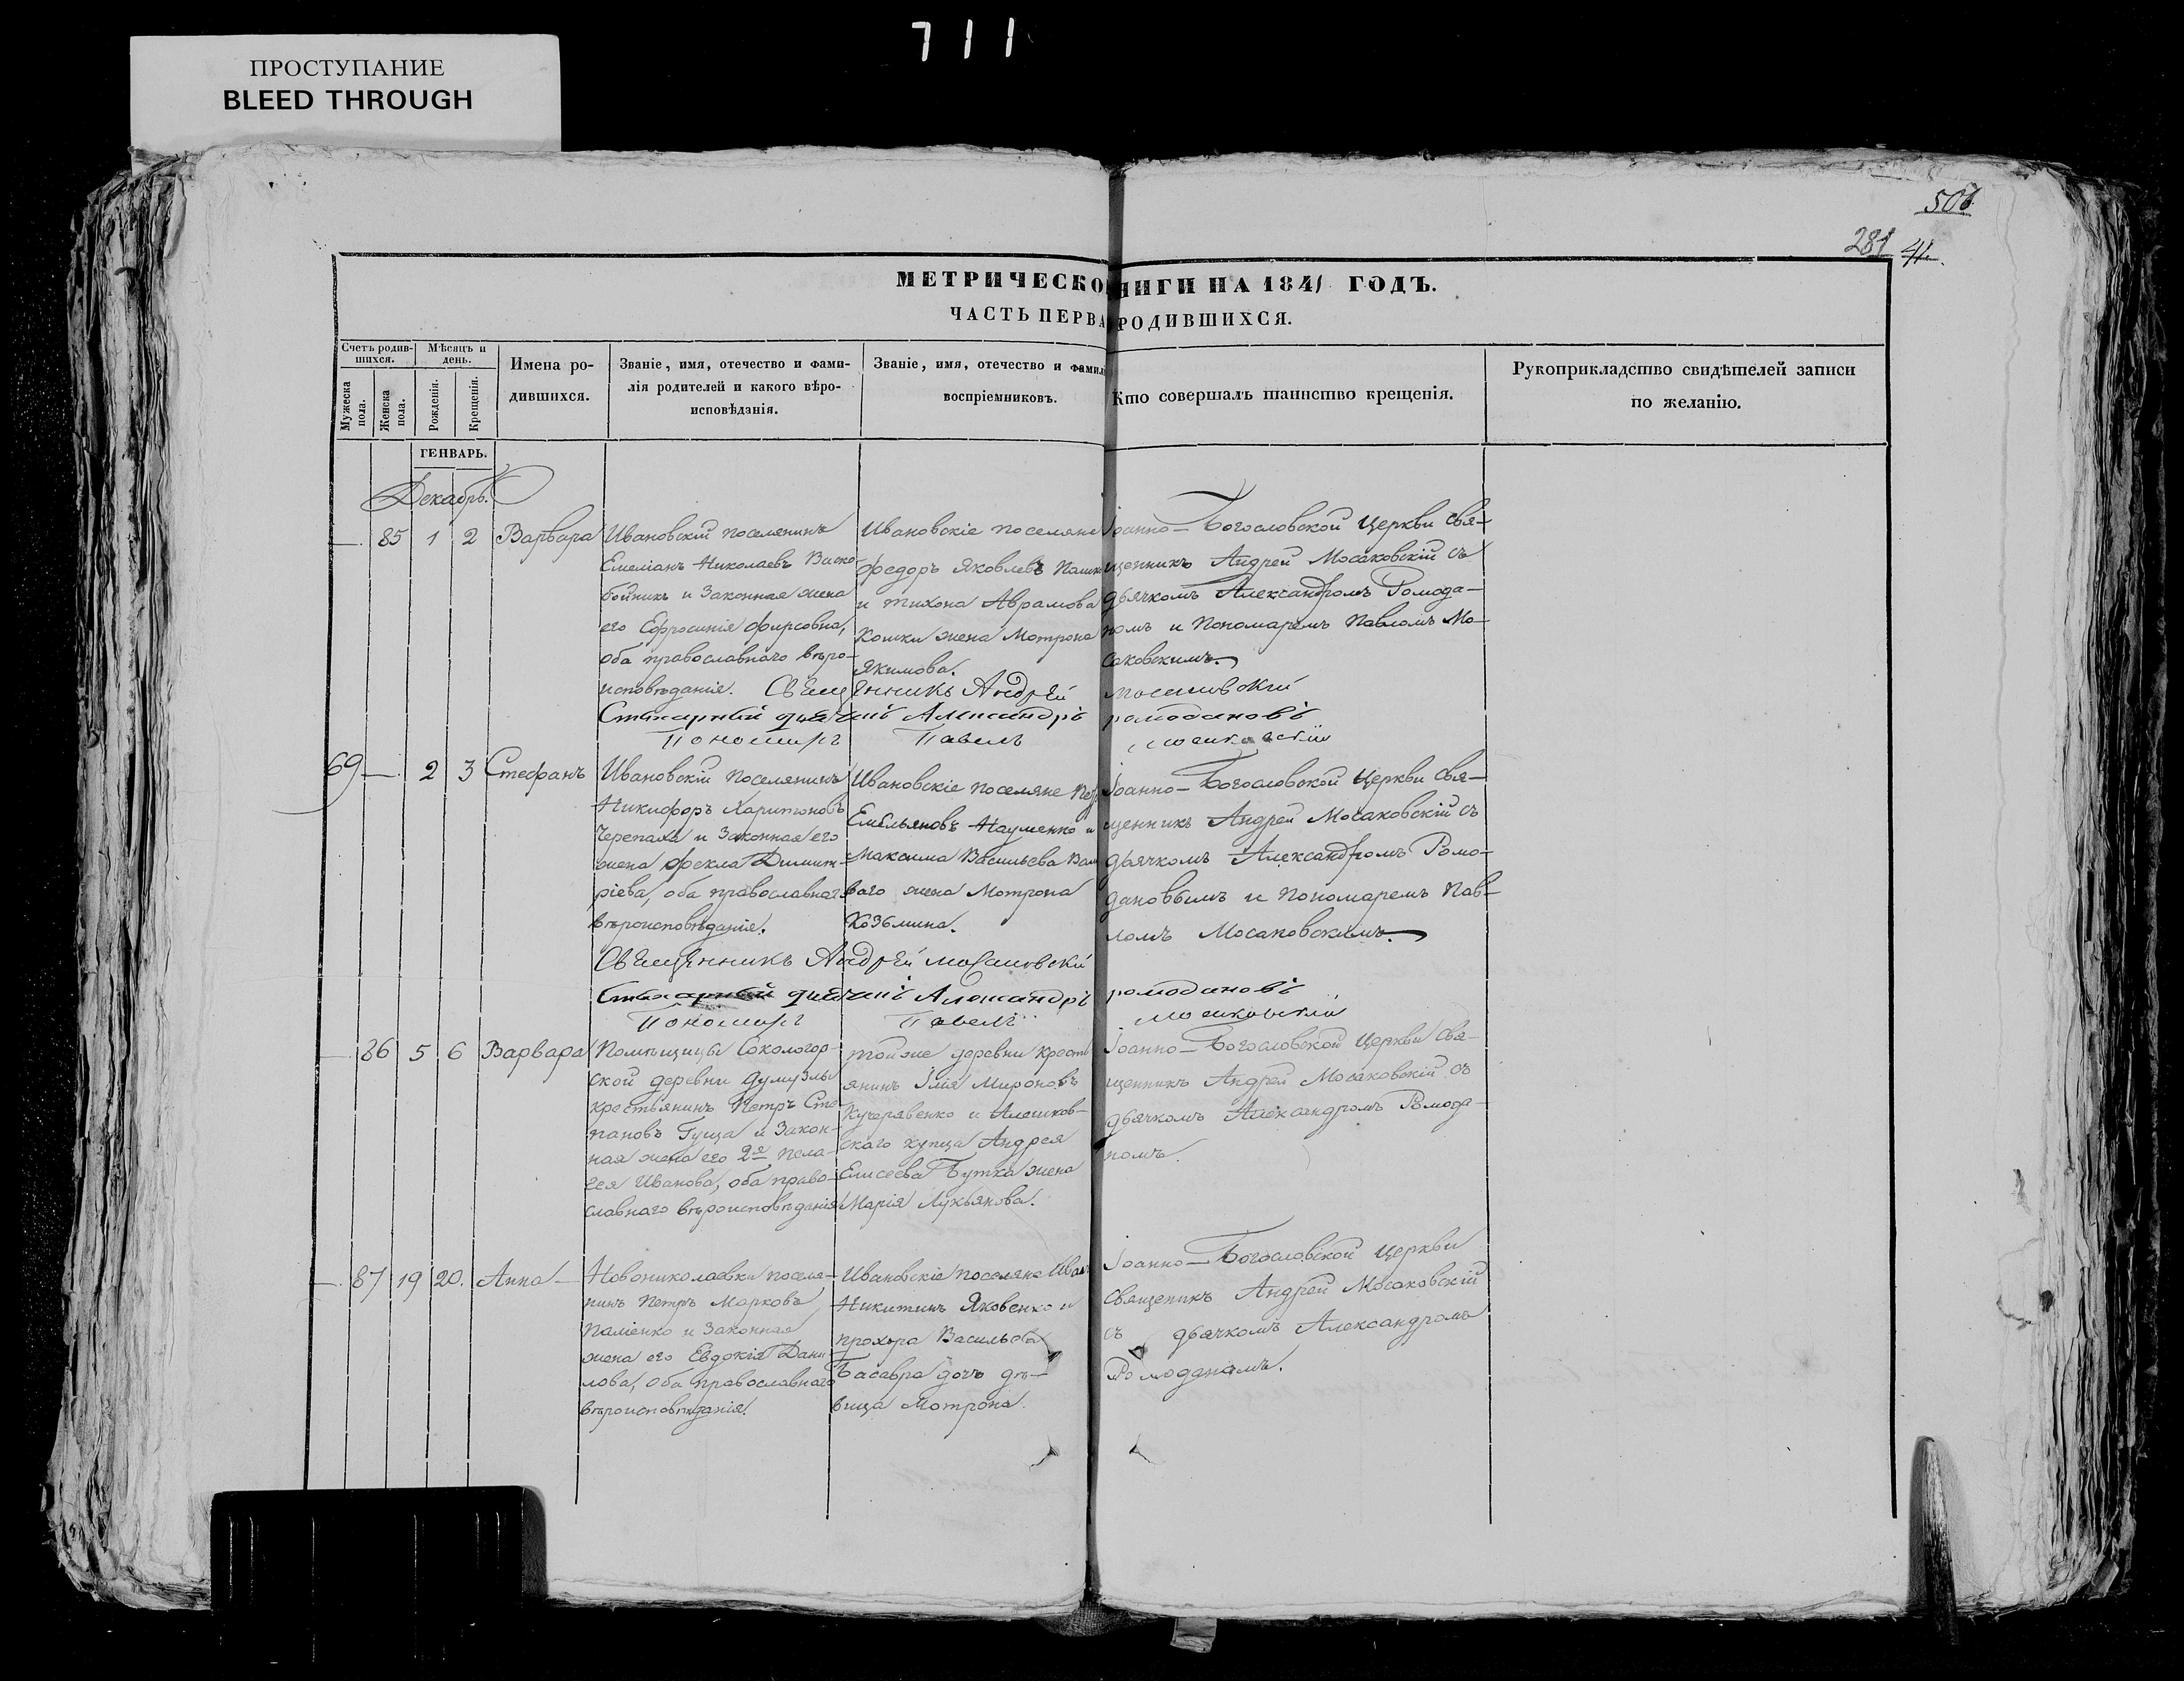 711
ПРОСТУПАНИЕ
BLEED THROUGH
506
281 41.
МЕТРИЧЕСКО НИГИ НА 1841 ГОДЪ.
ЧАСТЬ ПЕРВА РОДИВШИХСЯ.
Счетъ родив-
шихся.
Мужеска пола.
Женска пола.
Мѣсяцъ и
день.
Рожденія.
Крещенія.
Имена ро-
дившихся.
Званіе, имя, отечество и фами-
лія родителей и какого вѣро-
исповѣданія.
Званіе, имя, отечество и фамил
воспріемниковъ.
Кто совершалъ таинство крещенія.
Рукоприкладство свидѣтелей записи
по желанію.
ГЕНВАРЬ.
Декабрь.
— 85 1 2 Варвара
Ивановскій поселянинъ
Емеліанъ Николаевъ
бойникъ и Законная жена
его Ефросинія Фирсовна,
оба православнаго вѣро-
исповѣданія.
Ивановскіе поселяне
Федоръ Яковлевъ
и Тихона Аврамова
Кошки жена Мотрона
Якимова.
Іоанно-Богословской Церкви Свя-
щенникъ Андрей Мосаковскій съ
дьячкомъ Александромъ Ромода-
номъ и Пономаремъ Павломъ Мо-
саковскимъ.
Священникъ Андрей Мосаковскій
Стихарный дьячокъ Александръ Ромодановъ
Пономарь Павелъ Мосаковскій
69 — 2 3 Стефанъ
Ивановскій Поселянинъ
Никифоръ Харитоновъ
Черепаха и Законная его
жена Фекла Димит-
ріева, оба православнаго
вѣроисповѣданія.
Ивановскіе поселяне Петр
Емельяновъ Науменко и
Максима Васильева
ваго жена Мотрона
Козьмина.
Іоанно-Богословской Церкви Свя-
щенникъ Андрей Мосаковскій съ
дьячкомъ Александромъ Ромо-
дановымъ и Пономаремъ Пав-
ломъ Мосаковскимъ.
Священникъ Андрей Мосаковскій
Стихарный дьячокъ Александръ Ромодановъ
Пономарь Павелъ Мосаковскій
— 86 5 6 Варвара
Помѣщицы Сокологор-
ской деревни
крестьянинъ Петръ Сте-
пановъ Гуща и Закон-
ная жена его 2я Пела-
гея Иванова, оба право-
славнаго вѣроисповѣданія
Той же деревни Кресть
янинъ Илія Мироновъ
Кучерявенко и Алешков-
скаго купца Андрея
Елисеева Бутка жена
Марія Лукьянова.
Іоанно-Богословской Церкви Свя-
щенникъ Андрей Мосаковскій съ
дьячкомъ Александромъ Ромода-
номъ.
— 87 19 20. Анна
Новониколаевки поселя-
нинъ Петръ Марковъ
Паліенко и Законная
жена его Евдокія Дани-
лова, оба православнаго
вѣроисповѣданія.
Ивановскіе поселяне Иван
Никитинъ Яковенко и
Прохора Васильева
Басавра дочь дѣ-
вица Мотрона.
Іоанно-Богословской Церкви
Священикъ Андрей Мосаковскій
съ дьячкомъ Александромъ
Ромоданомъ.